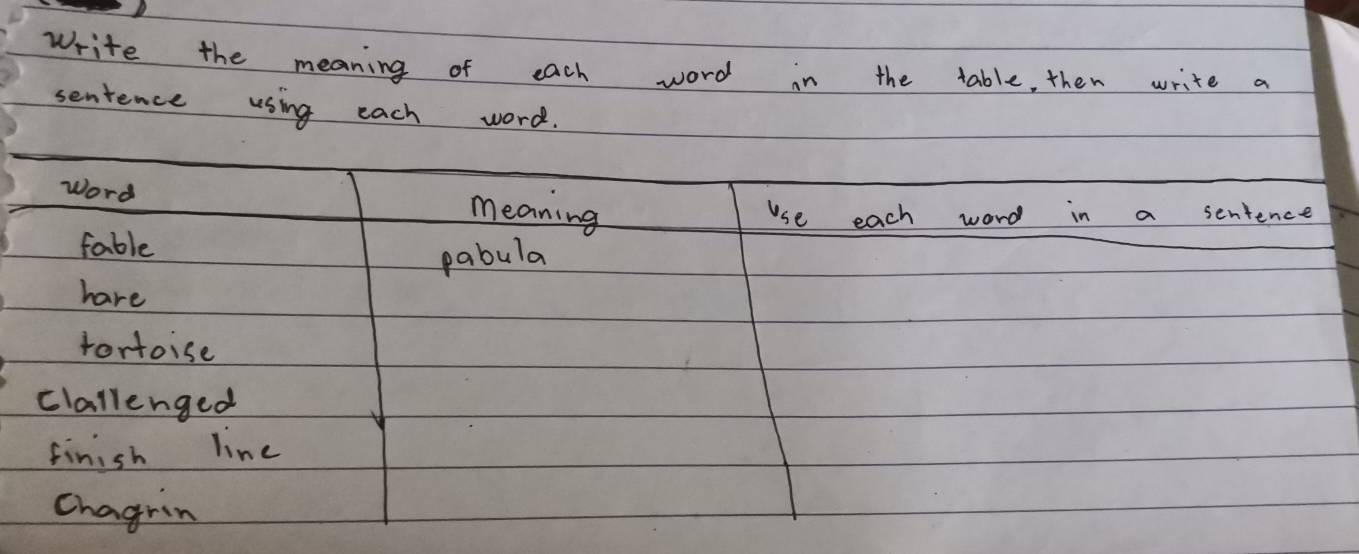 Write the meaning of each word in the table, then write a
sentence using each word.
Word Meaning Use each word in a sentence
fable pabula
hare
tortoise
Clallenged
finish line
Chagrin